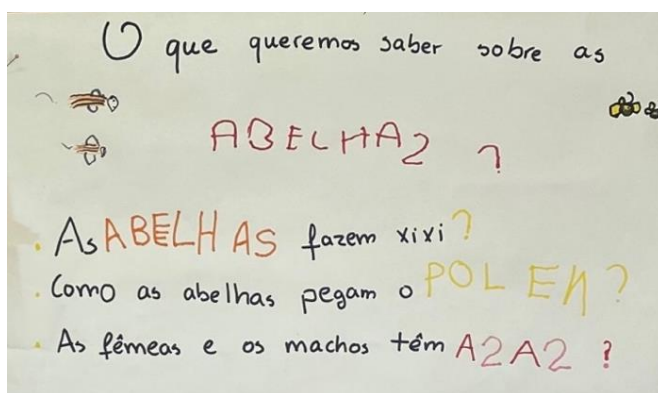 O que queremos saber sobre as
ABELHA2 ?
. As ABELHAS fazem xixi ?
. Como as abelhas pegam o POLEN ?
. As fêmeas e os machos têm A2A2 ?